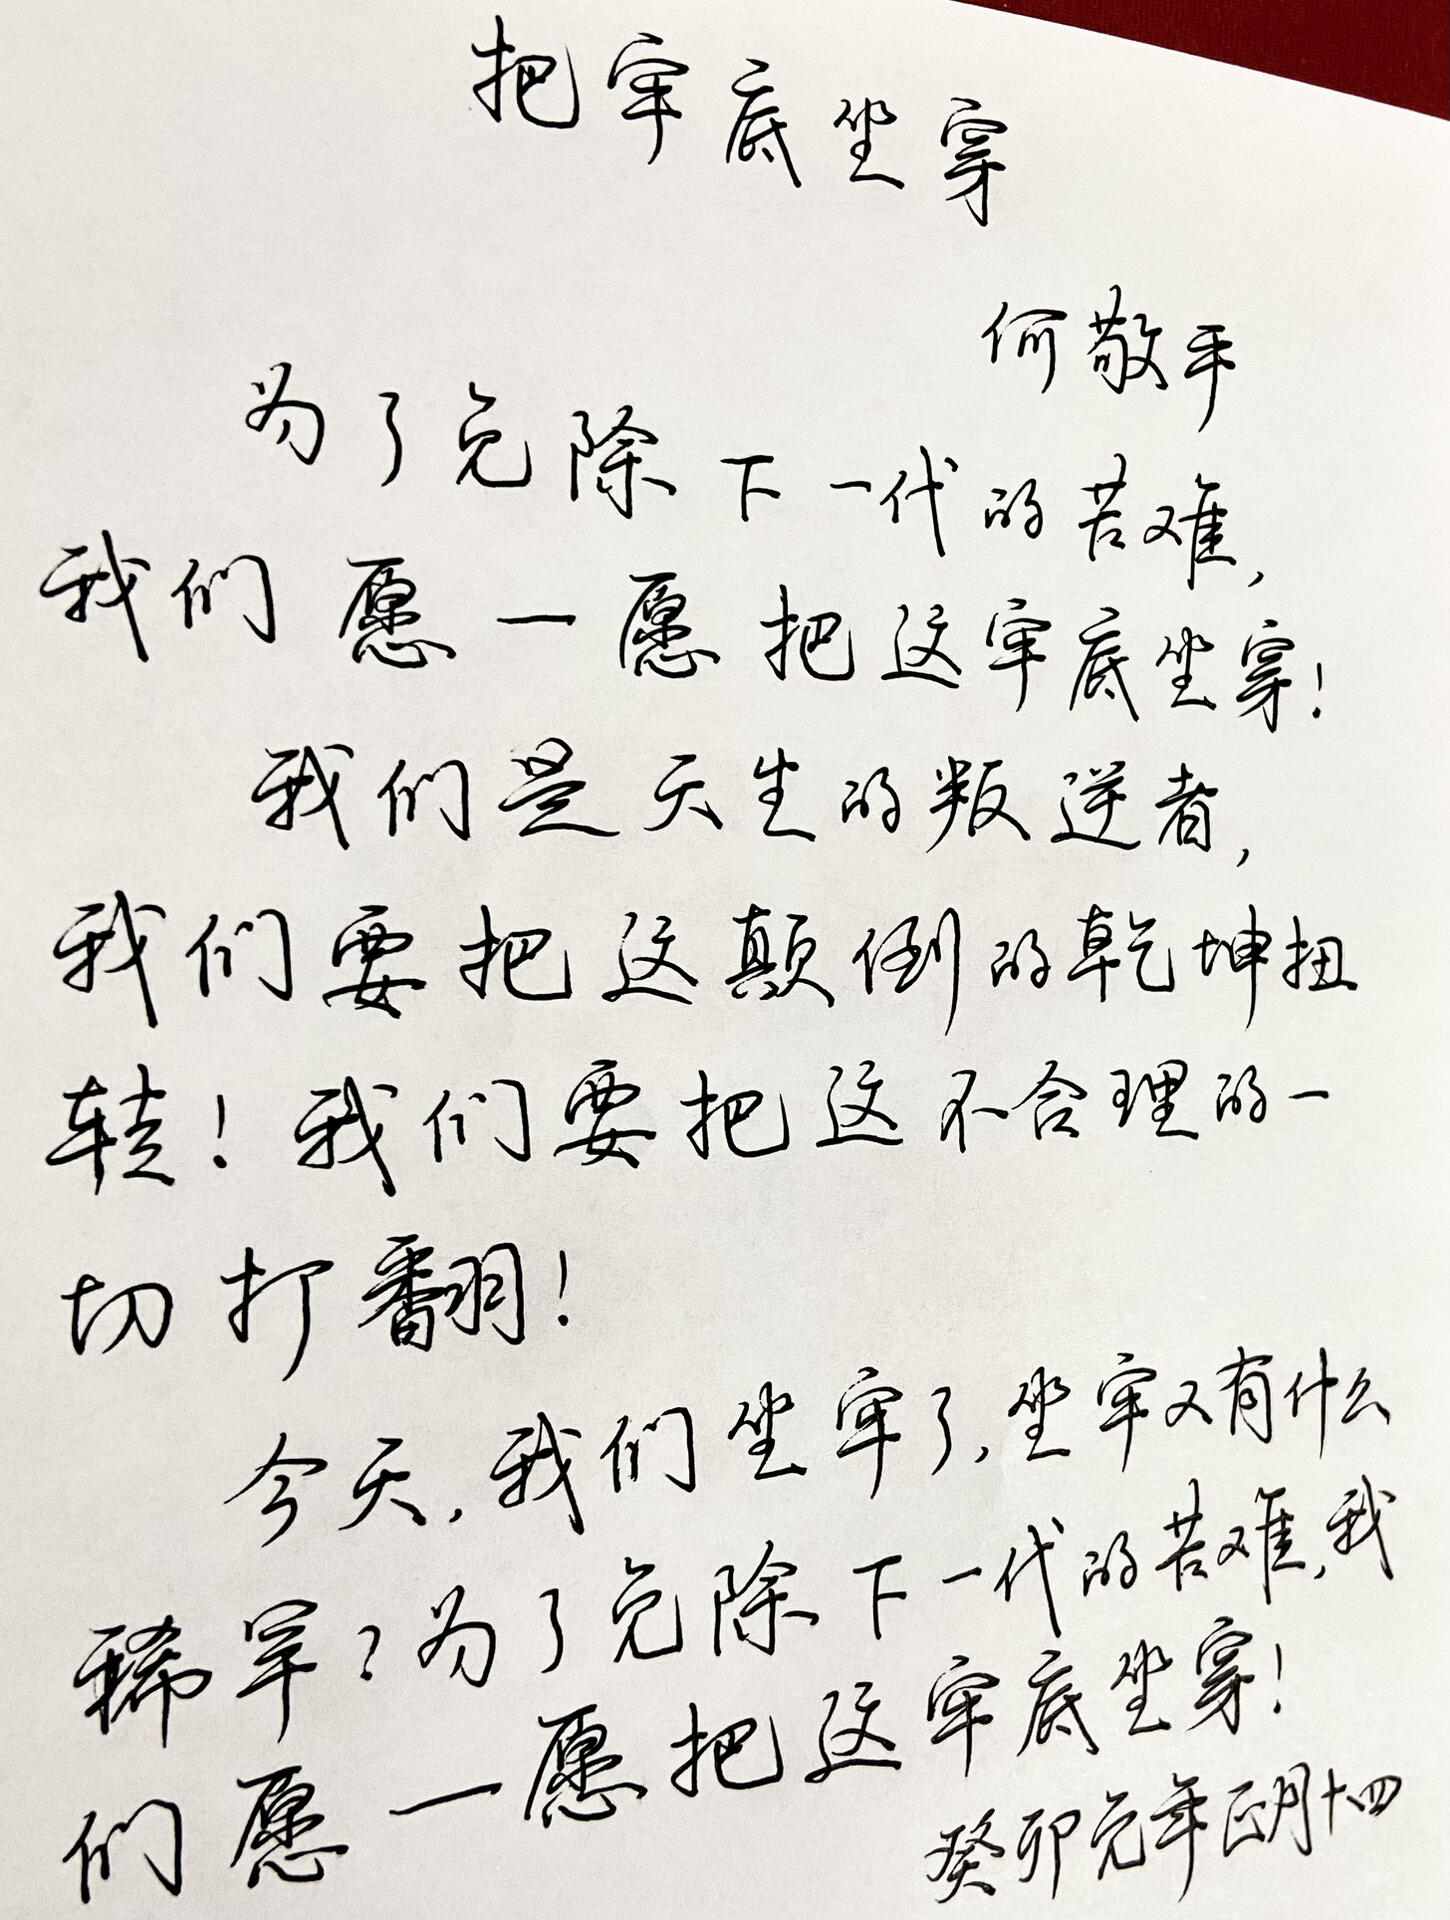 把牢底坐穿
何敬平
为了免除下一代的苦难,
我们愿一愿把这牢底坐穿!
我们是天生的叛逆者,
我们要把这颠倒的乾坤扭
转!我们要把这不合理的一
切打翻!
今天,我们坐牢了,坐牢又有什么
稀罕?为了免除下一代的苦难,我
们愿一愿把这牢底坐穿!
癸卯元年正月十四